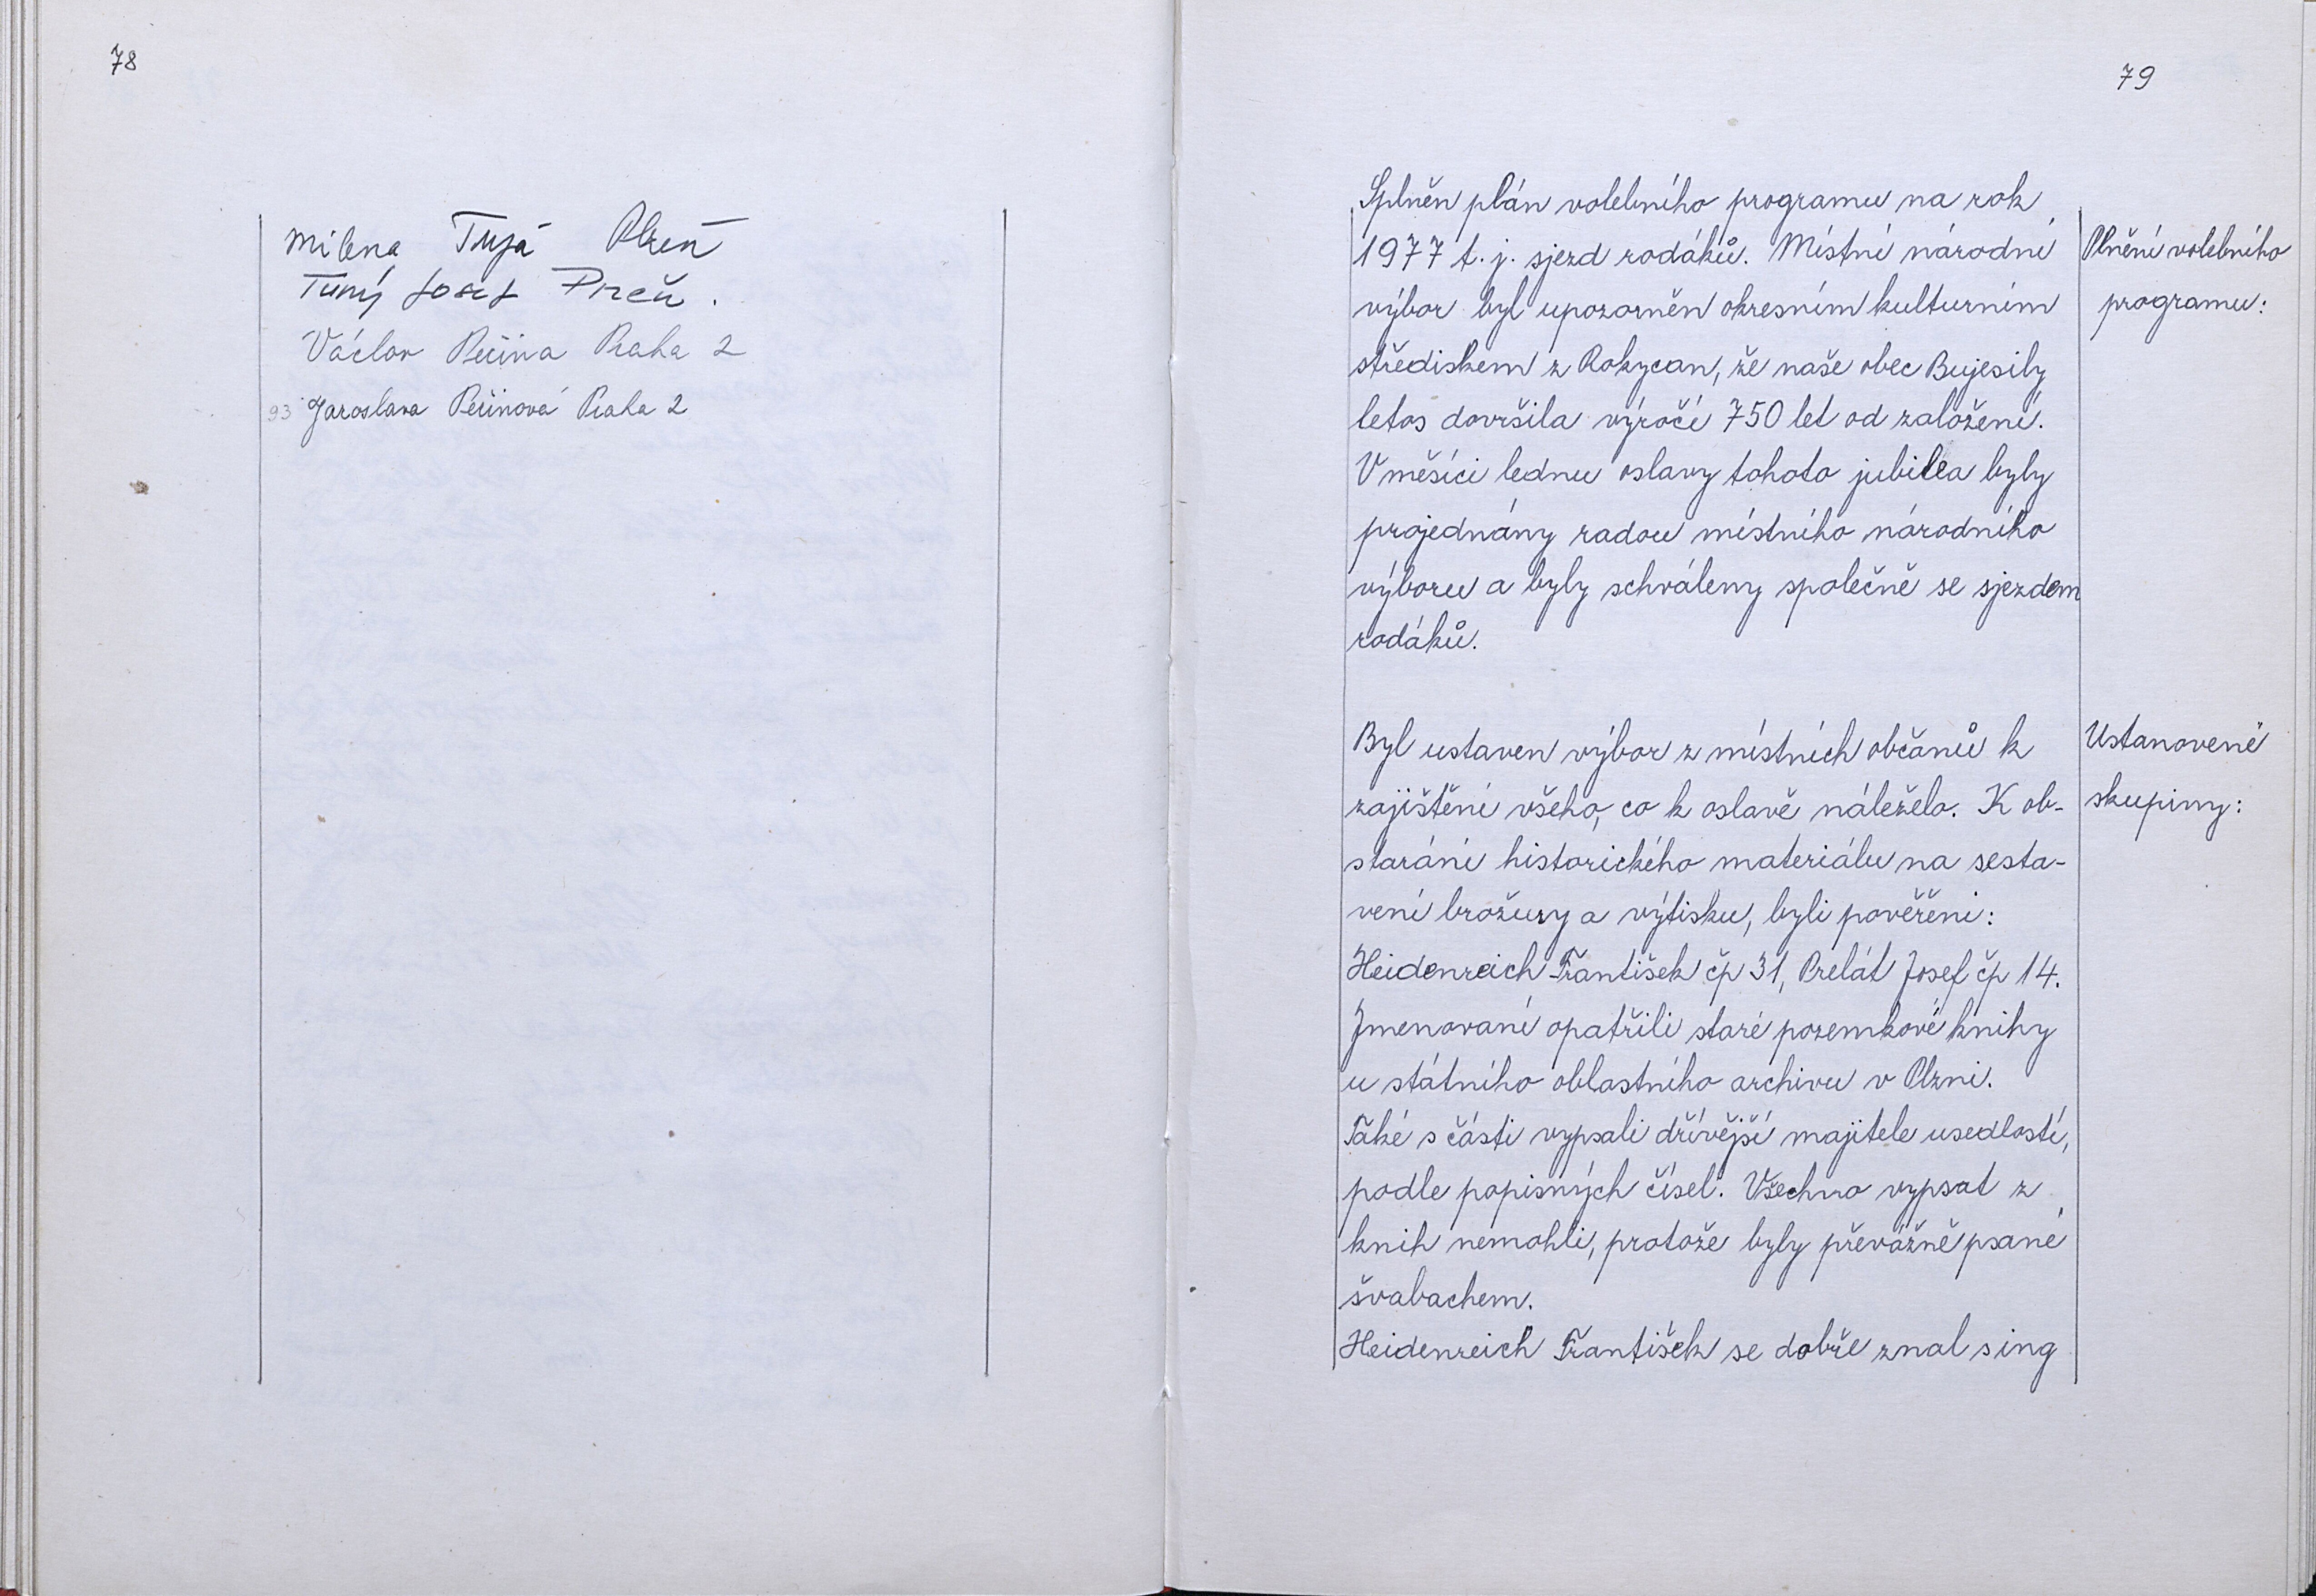 78
Milena Tupá Plzeň
Tupý Josef Plzeň.
Václav Peřina Praha 2
93 Jaroslava Peřinová Praha 2
79
Splněn plán volebního programu na rok
1977 t. j. sjezd rodáků. Místní národní
výbor byl upozorněn okresním kulturním
střediskem z Rokycan, že naše obec Bujesily
letos dovršila výročí 750 let od založení.
V měsíci lednu oslavy tohoto jubilea byly
projednány radou místního národního
výboru a byly schváleny společně se sjezdem
rodáků.
Plnění volebního
programu:
Byl ustaven výbor z místních občanů k
zajištění všeho, co k oslavě náleželo. K ob-
starání historického materiálu na sesta-
vení brožury a výtisku, byli pověřěni:
Heidenreich František čp 31, Prelát Josef čp 14.
Jmenovaní opatřili staré pozemkové knihy
u státního oblastního archivu v Plzni.
Také s části vypsali dřívější majitele usedlostí,
podle popisných čísel. Všechno vypsat z
knih nemohli, protože byly převážně psané
švabachem.
Heidenreich František se dobře znal s ing
Ustanovené
skupiny: